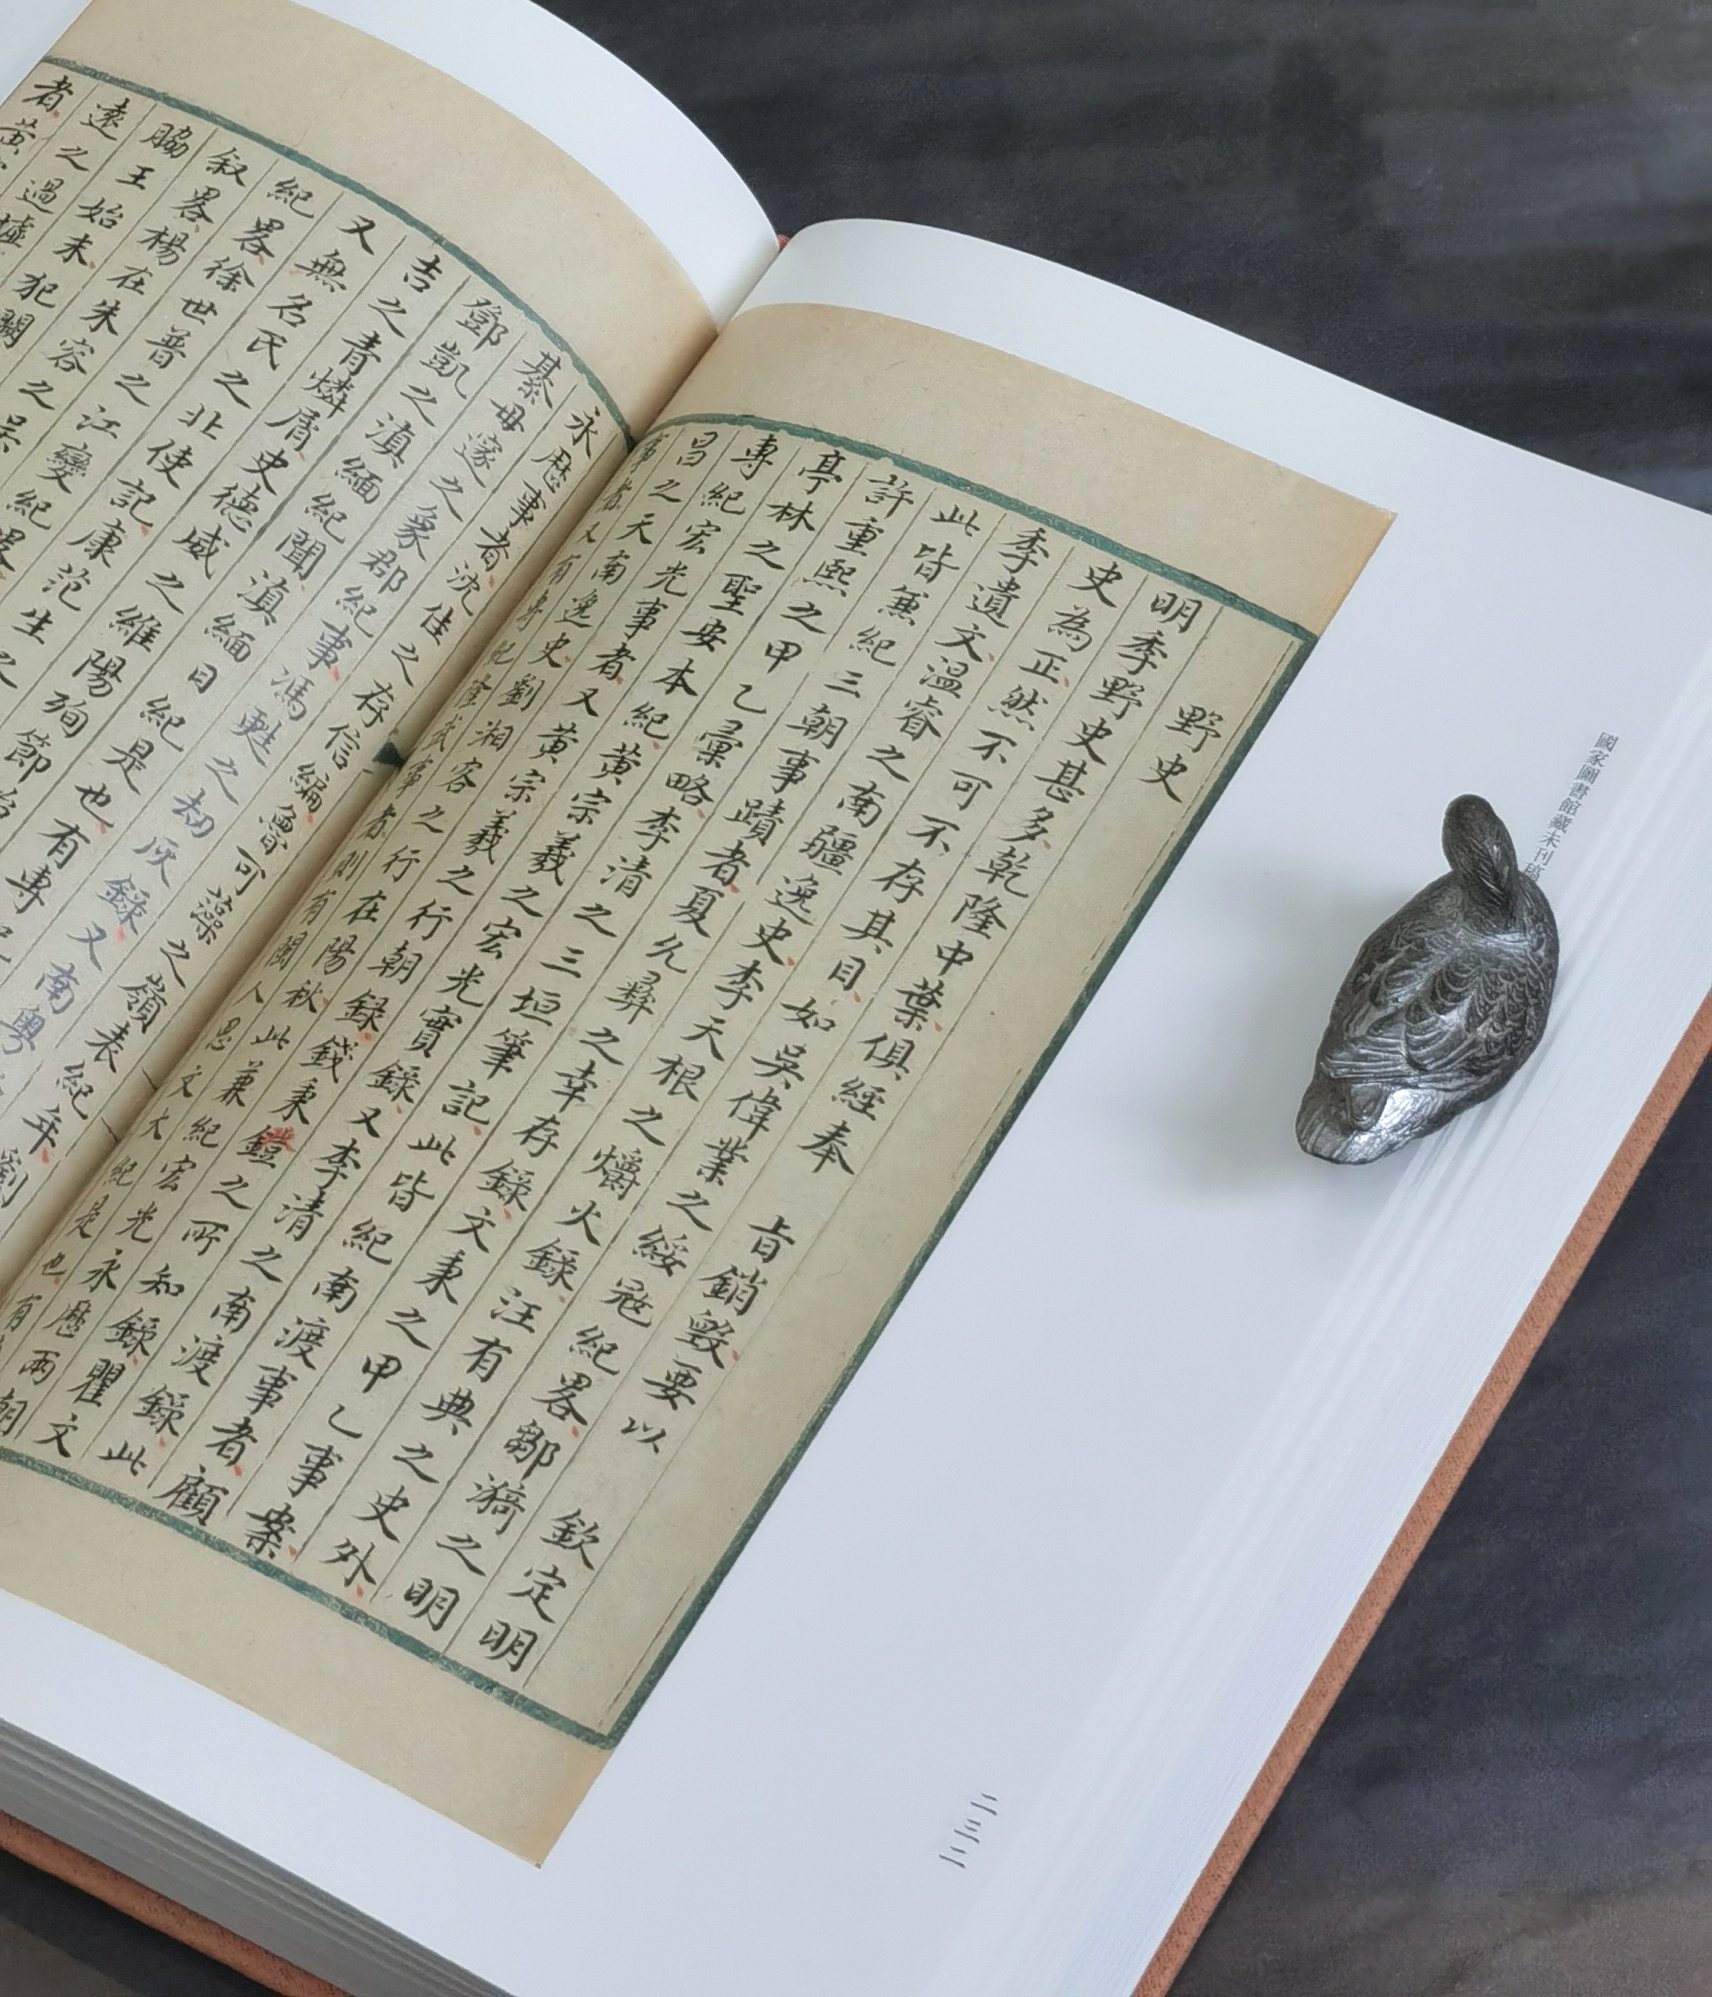 國家圖書館藏未刊
野史
明季野史甚多乾隆中葉俱經奉 旨銷毀要以 欽定明
史為正然不可不存其目如吳偉業之綏冦紀畧鄒漪之明
季遺文溫睿之南疆逸史李天根之爝火錄汪有典之史外
此皆兼紀三朝事蹟者夏允彝之幸存錄文秉之甲乙事案
許重熙之甲乙彙略李清之三垣筆記此皆紀南渡事者顧
亭林之聖安本紀黃宗羲之宏光實錄又李清之南渡錄此
專紀宏光事者又黃宗羲之行朝錄錢秉鐙之所知錄瞿文
昌之天南逸史劉湘客之行在陽秋此兼紀宏光永歷兩朝
事者又有專紀隆武事者則有閩人思文大紀是也有
二三二
永歷事者沈佳之存信編魯可藻之嶺表紀年劉
綦毋邃之象郡紀事馮甦之劫灰錄又南粵
鄧凱之滇緬紀聞滇緬日紀是也有專紀
吉之青燐屑史德威之維陽殉節始
又無名氏之北使記康范生之
紀畧徐世普之江變紀畧
叙畧楊在朱容之吳
脇王始末犯闕
遠之過墟
者黃